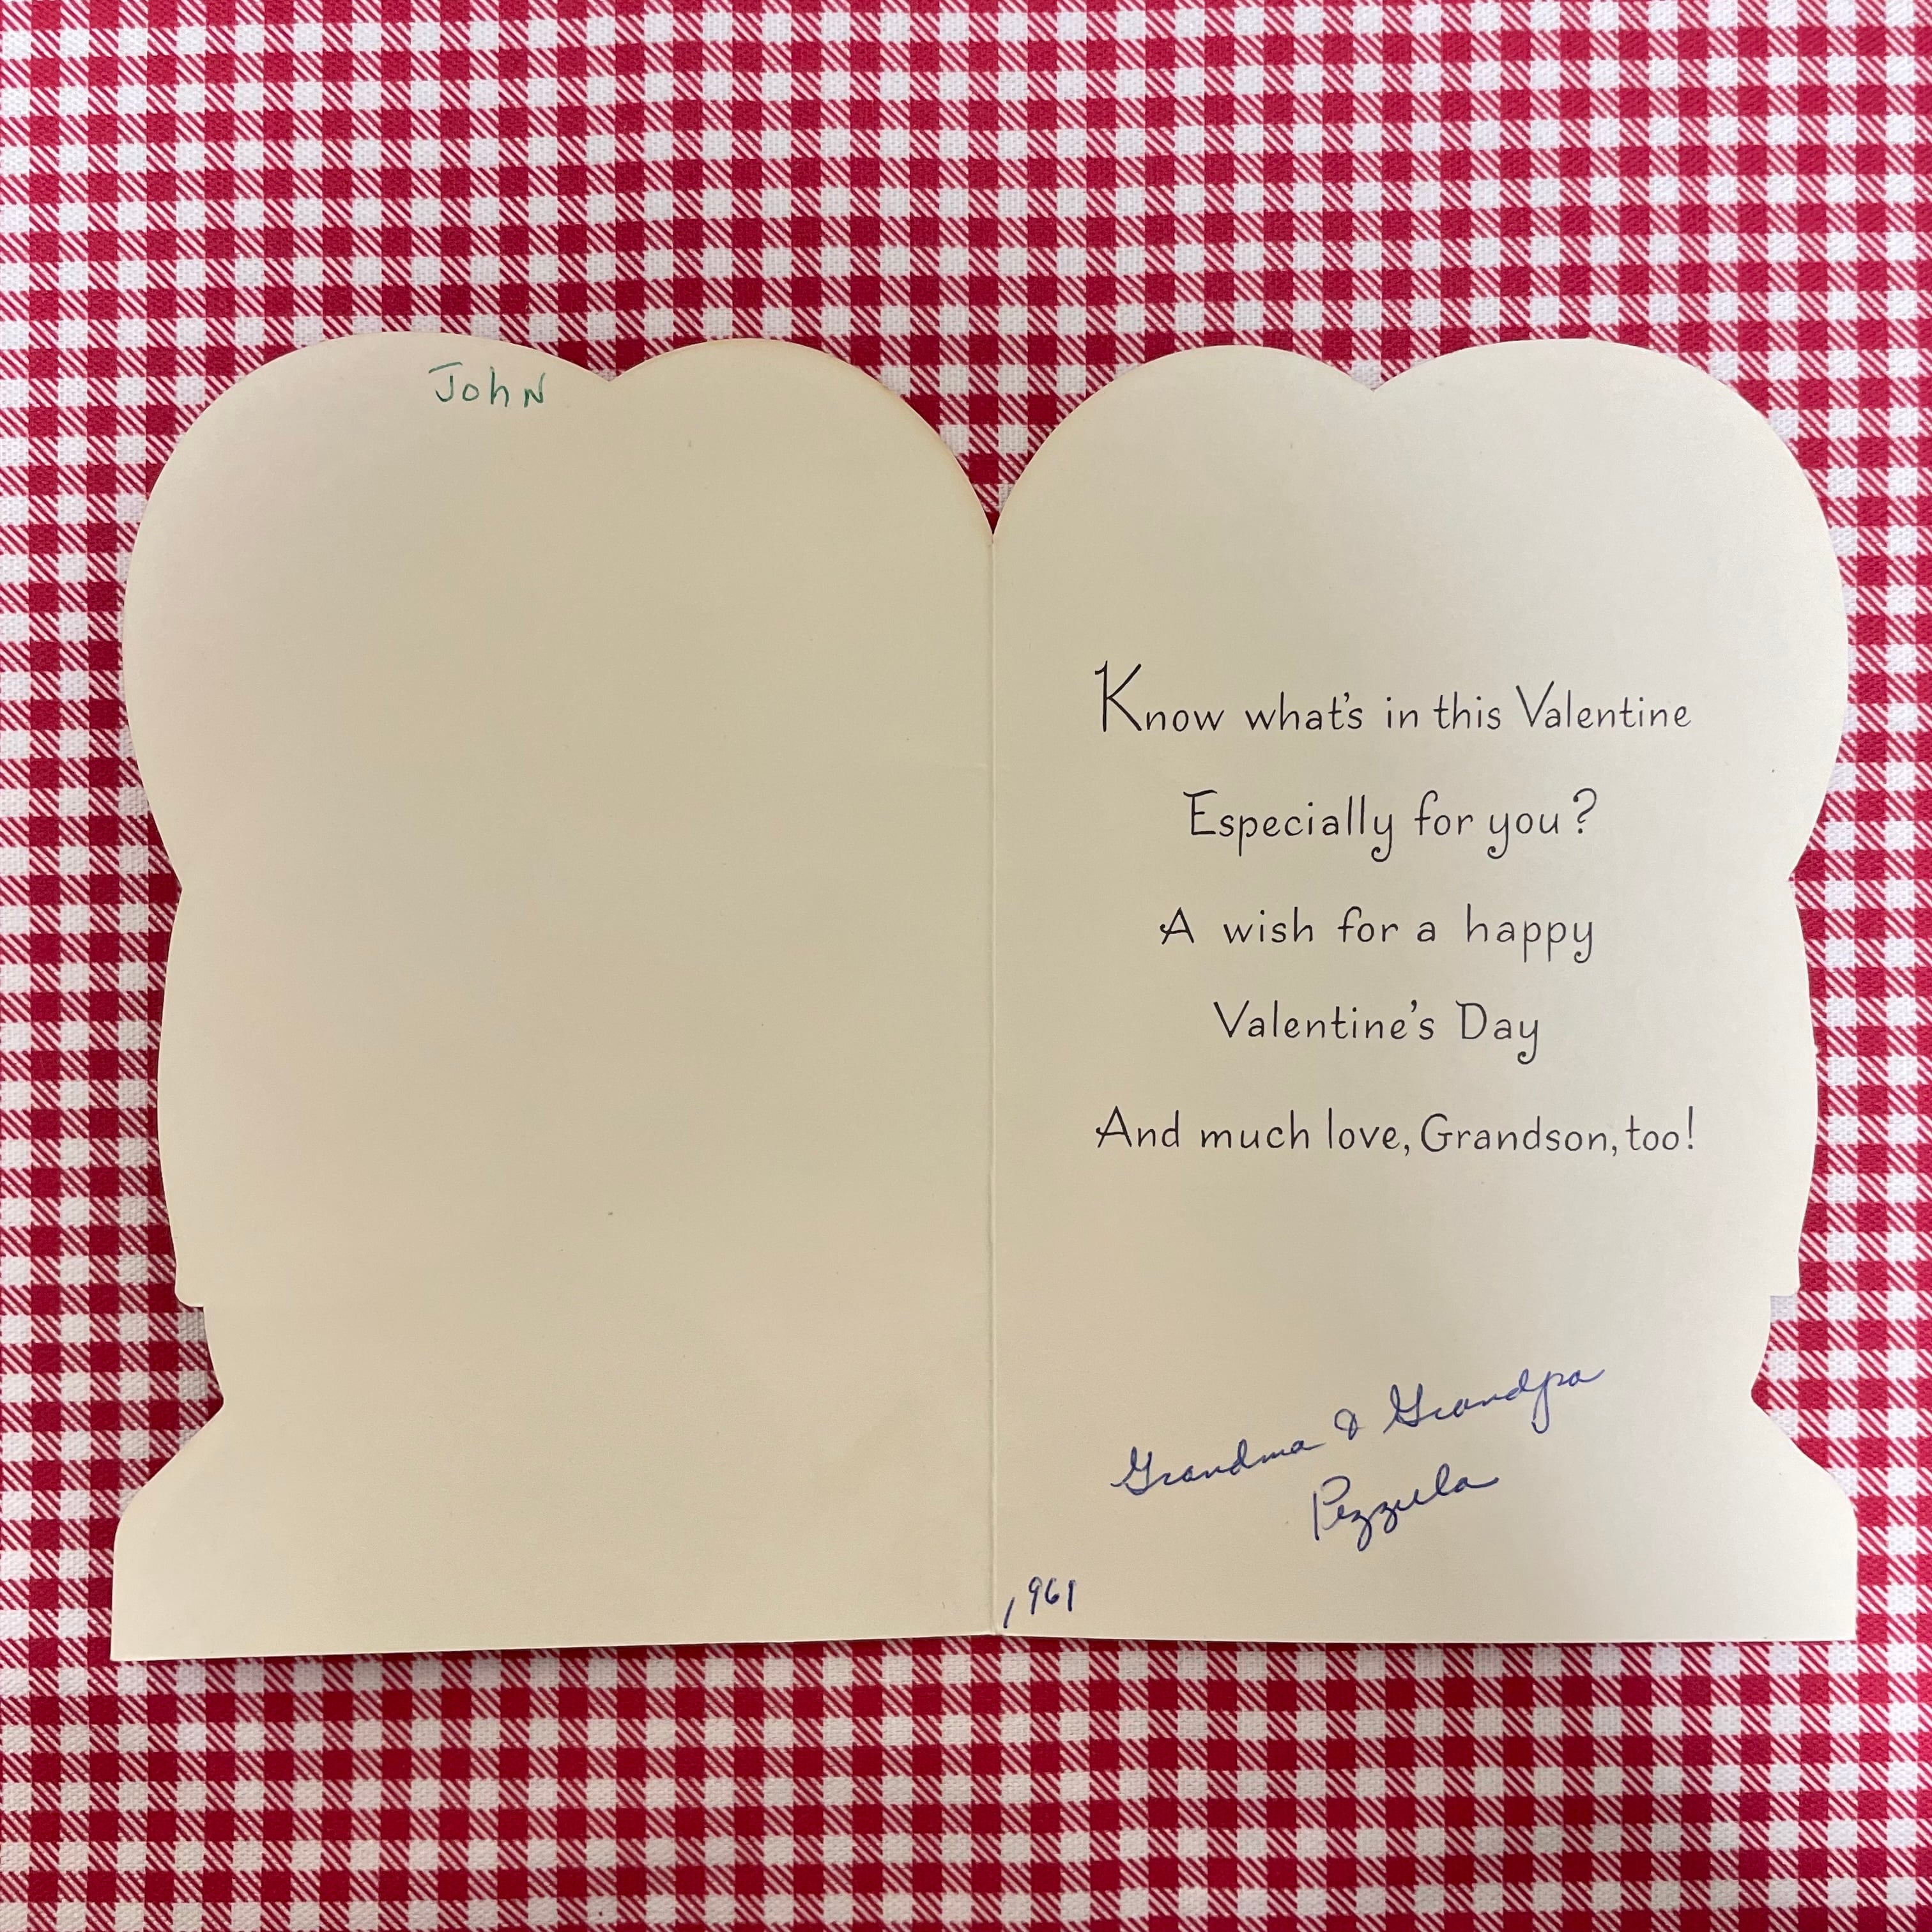 John
Know what's in this Valentine
Especially for you?
A wish for a happy
Valentine's Day
And much love, Grandson, too!
Grandma & Grandpa
Pezzula
1961